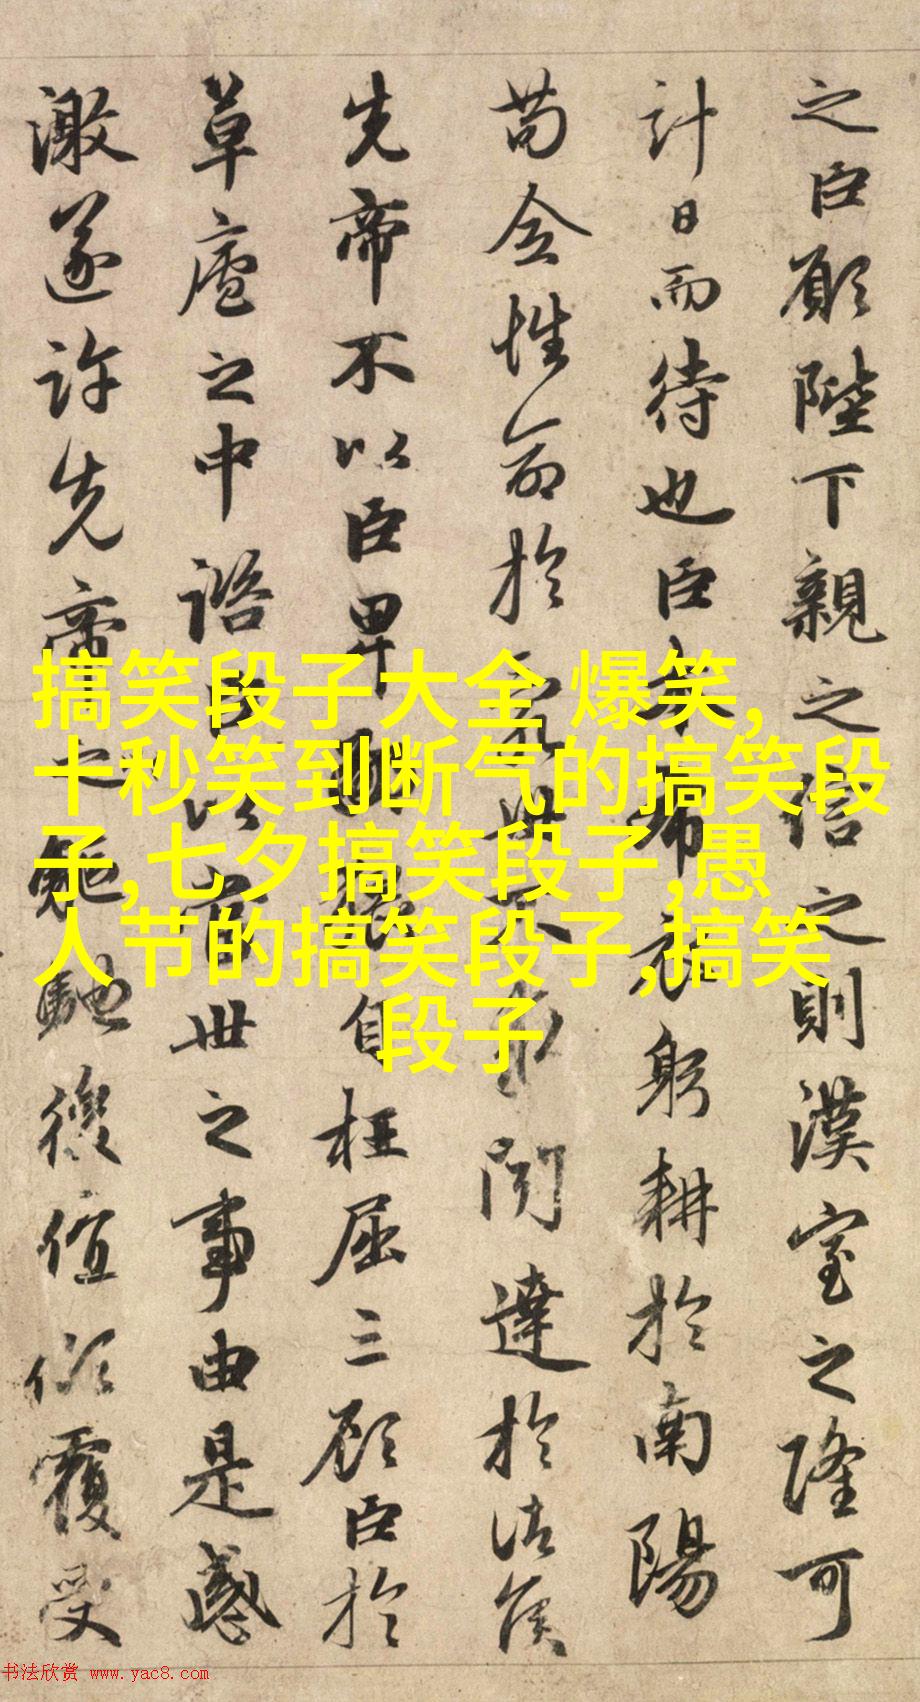 之臣願陛下親之信之則漢室之隆可
計日而待也臣本布衣躬耕於南陽
苟全性命於亂世不求聞達於諸侯
先帝不以臣卑鄙猥自枉屈三顧臣於
草廬之中諮臣以當世之事由是感
激遂許先帝以驅馳後值傾覆受
搞笑段子大全 爆笑,
十秒笑到断气的搞笑段
子,七夕搞笑段子,愚
人节的搞笑段子,搞笑
段子
书法欣赏 www.yac8.com